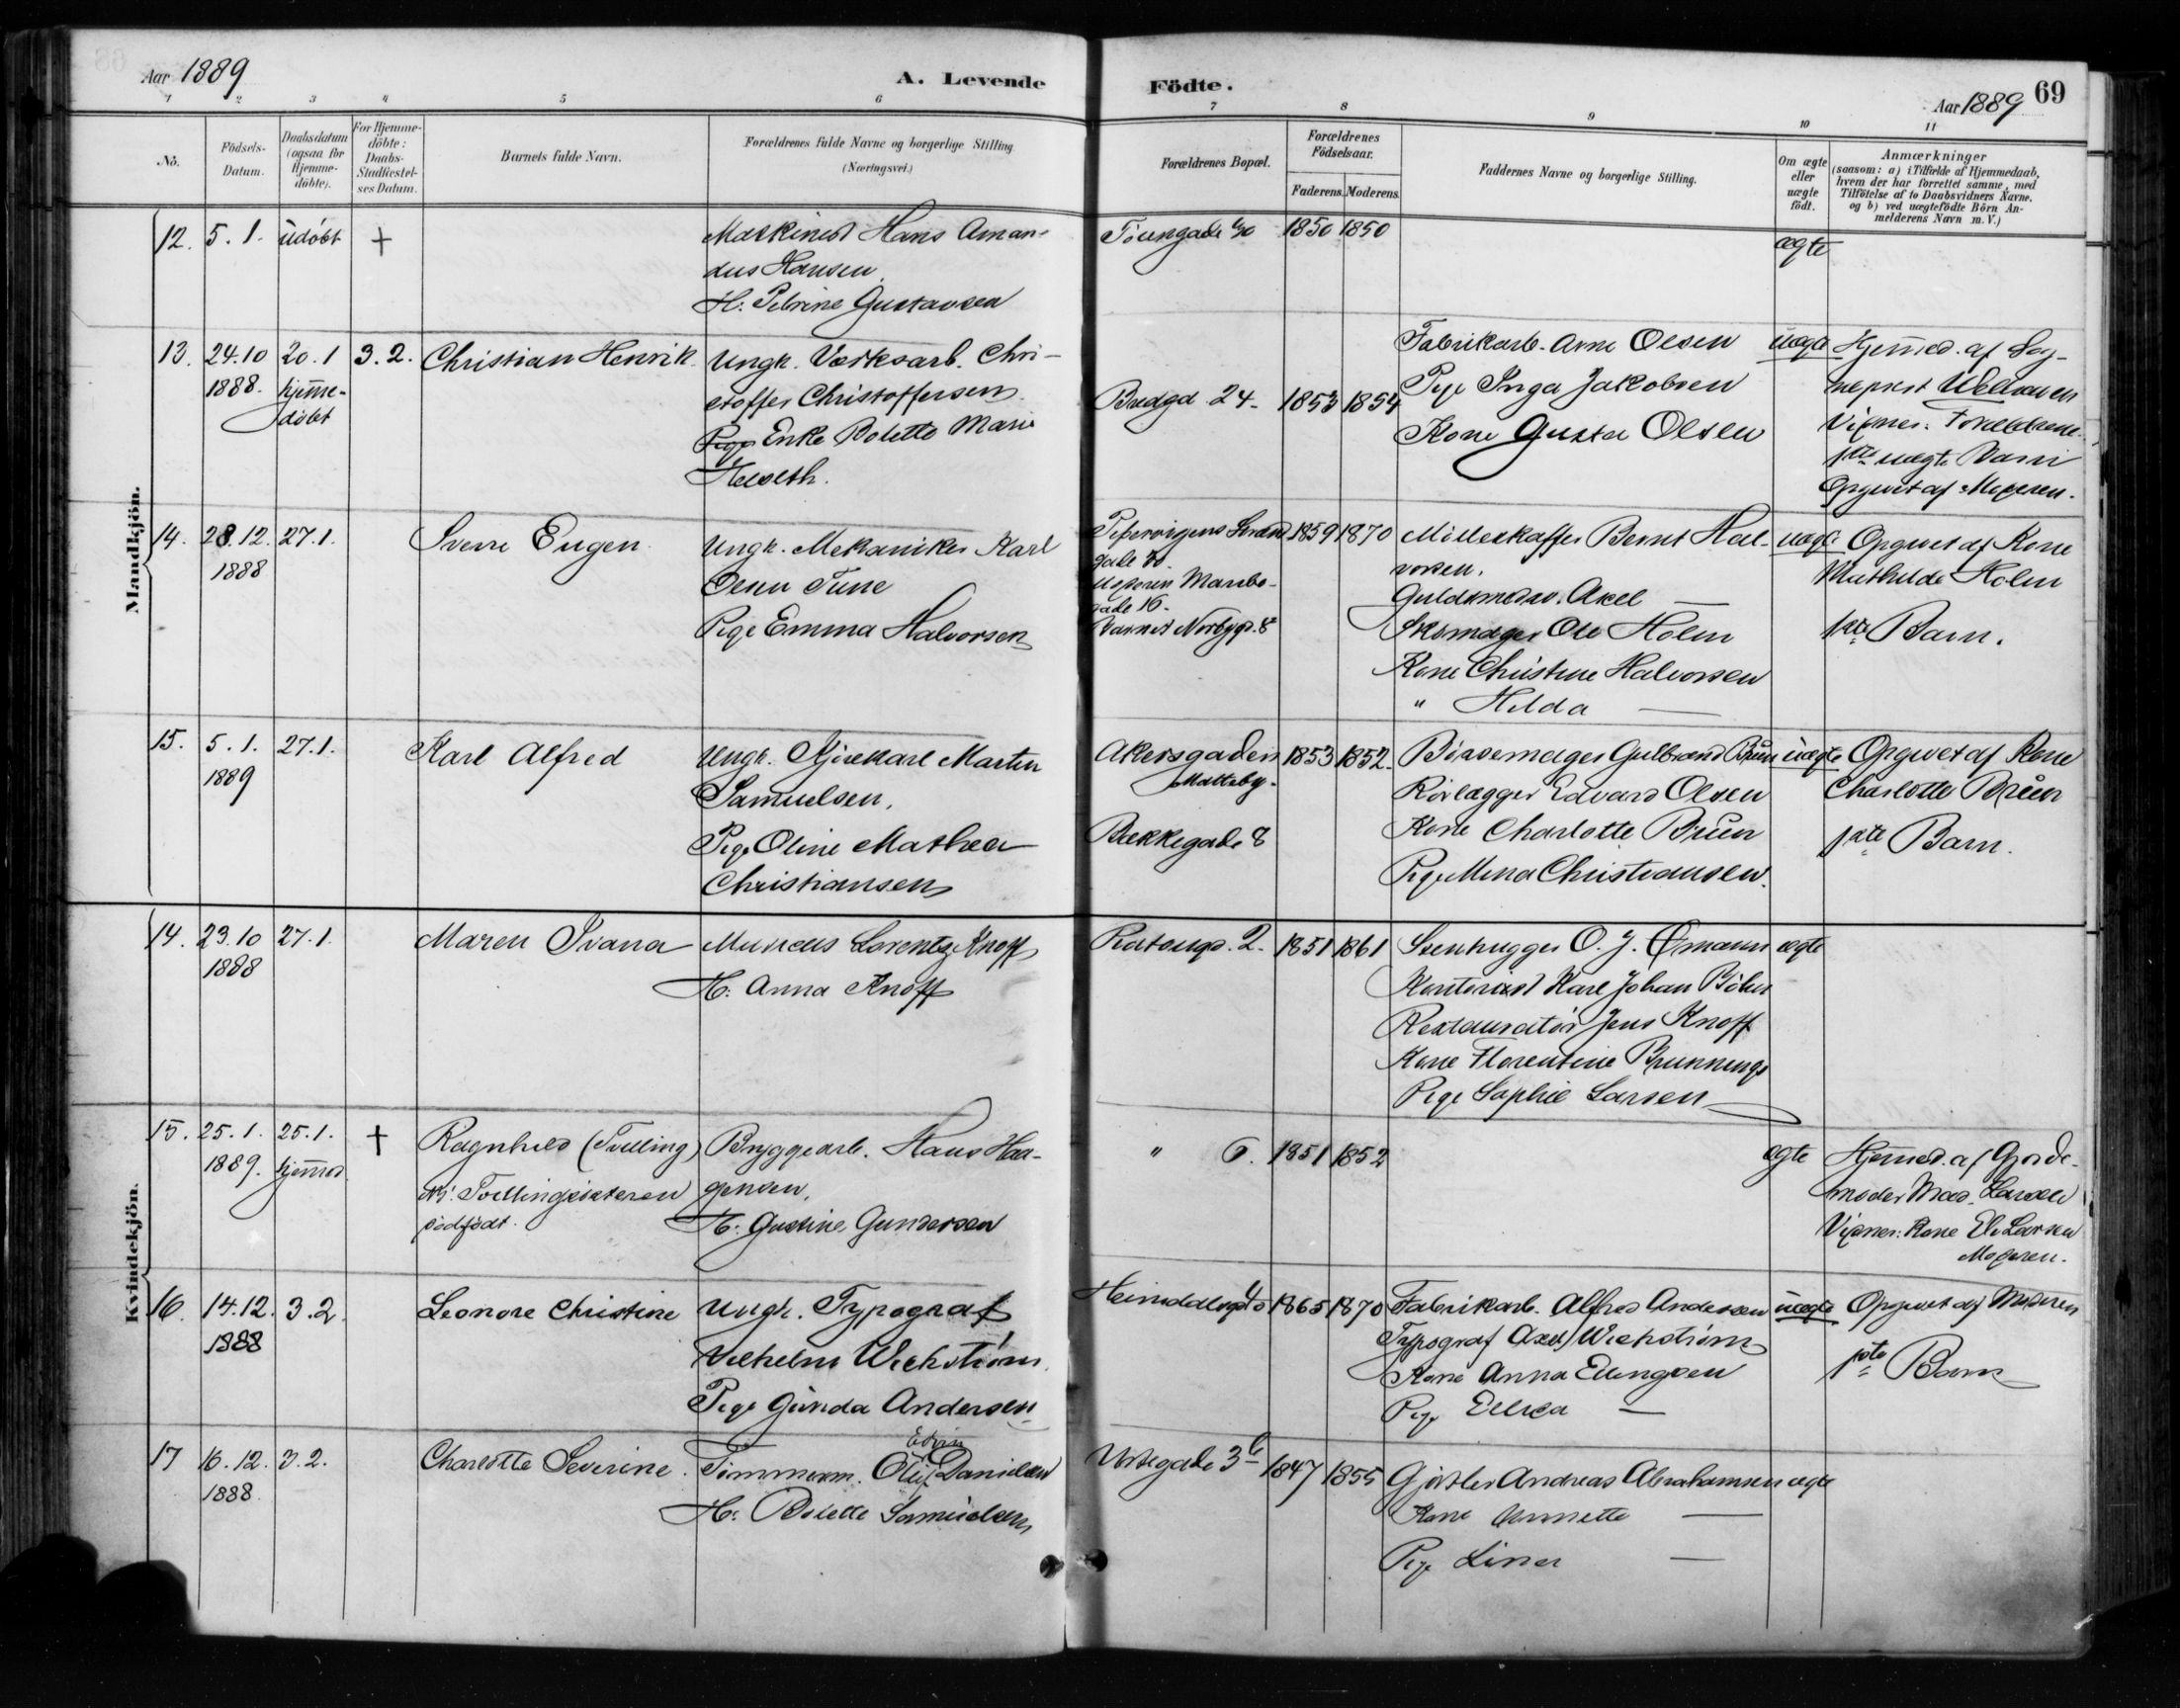 Aar 1889
A. Levende
Födte.
Aar 1889
69
1 2 3 4 5 6 7 8 9 10 11
No.
Födsels-Datum.
Daabsdatum (ogsaa for Hjemme-döbte).
For Hjemme-döbte: Daabs-Stadfæstel-ses Datum.
Barnets fulde Navn.
Forældrenes fulde Navne og borgerlige Stilling (Næringsvei.)
Forældrenes Bopæl.
Forældrenes Födselsaar.
Faderens. Moderens.
Faddernes Navne og borgerlige Stilling.
Om ægte eller uægte födt.
Anmærkninger (saasom: a) i Tilfælde af Hjemmedaab, hvem der har forrettet samme, med Tilföielse af to Daabsvidners Navne, og b) ved uægtefödte Börn An-melderens Navn m. V.)
Mandkjön.
12. 5. 1. udøbt +
Maskinist Hans Aman-
dus Hansen
H: Petrine Gustavsen
1850 1850
ægte
13. 24.10 1888. 20.1 hjemme-døbt 3.2. Christian Henrik
Ungk. Værksarb. Chri-
stoffer Christoffersen
Pige Enke Bolette Marie
Helseth.
Bredgd. 24. 1853 1854
Fabrikarb. Arne Olsen
Pige Inga Jakobsen
Kone Gusta Olsen
uægte
Hjemmed. af Sog-
neprest
Vidner: Forældrene.
1ste uægte Barn
Opgivet af Moderen.
14. 28.12. 1888 27.1. Sverre Eugen
Ungk. Mekaniker Karl
Tune
Pige Emma Halvorsen
Pipervigens Strand-
gade
Moderen Maribo-
gade 16.
Barnet Norbygd. 8
1859 1870
Møllerkaffer Bernt Hal-
vorsen.
Guldsmedsv. Axel —
Skomager Ole Holm
Kone Christine Halvorsen
" Hilda —
uægte
Opgivet af Kone
Mathilde Holm
1ste Barn.
15. 5.1. 1889 27.1. Karl Alfred
Ungk. Kjørekarl Martin
Samuelsen.
Pige Oline Mathea
Christiansen
Akersgaden
Malteby.
Bækkegade 8
1853 1852.
Børsemager Gulbrand Bruun
Rørlægger Edvard Olsen
Kone Charlotte Bruun
Pige Mina Christiansen.
uægte
Opgivet af Kone
Charlotte Bruun
1ste Barn.
Kvindekjön.
14. 23.10 1888 27.1. Maren Ivana
Lorentz Knoff
H: Anna Knoff
2. 1851 1861
Stenhugger O. J. Ømann
Kontorist Karl Johan Bøhn
Restauratør Jens Knoff
Kone Florentine Brunnings
Pige Sophie Larsen
ægte
15. 25.1. 1889. 25.1. hjemmed. + Ragnhild (Tvilling)
NB: Tvillingsøsteren
dødfødt.
Bryggearb. Hans Haa-
gensen.
H: Gustine Gundersen
" 6. 1851 1852
ægte
Hjemmed. af Gjorde-
moder Mad. Larsen
Vidner: Kone El. Larsen
Moderen.
16. 14.12. 1888 3.2. Leonore Christine
Ungk. Typograf
Vilhelm Wickstrøm.
Pige Gunda Andersen
1865 1870
Fabrikarb. Alfred Andersen
Typograf Axel Wickstrøm
Kone Anna Ellingsen
Pige Ellisa —
uægte
Opgivet af Moderen
1ste Barn
17 16.12. 1888. 3.2. Charlotte Severine.
Tømmerm. Oluf Edvin Danielsen
H: Bolette Samuelsen
Urtegade 3b 1847 1855
Gjørtler Andreas Abrahamsen
Kone Annette —
Pige Lina —
ægte